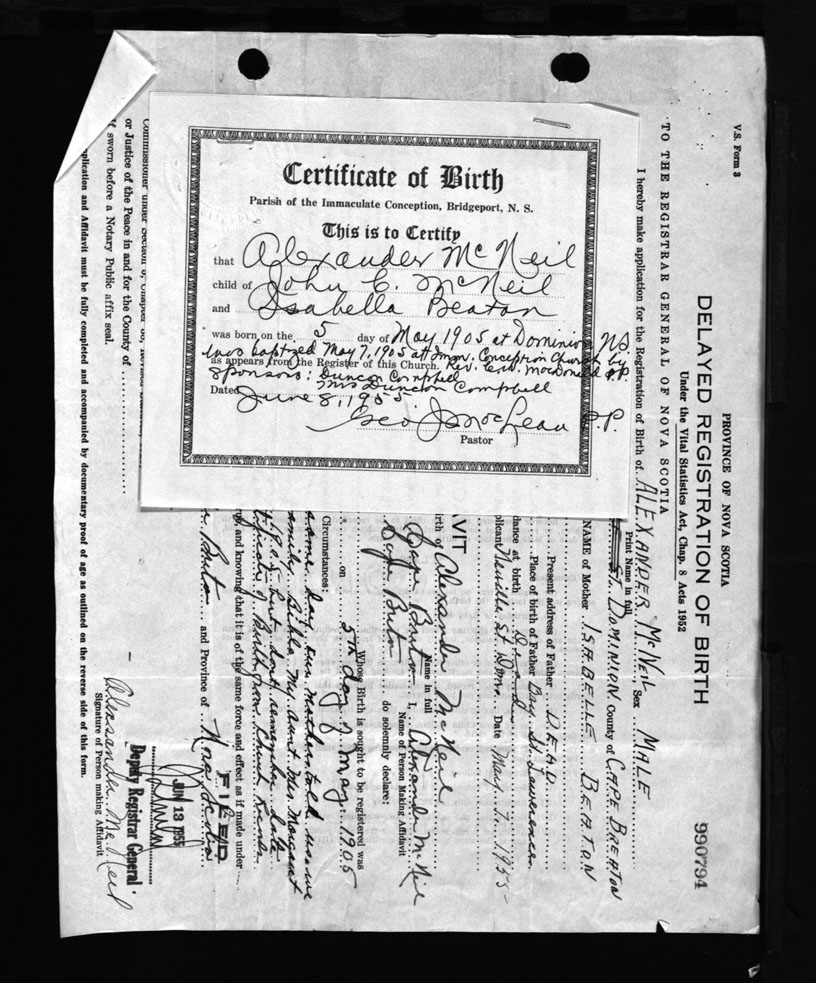 Certificate of Birth
Parish of the Immaculate Conception, Bridgeport, N. S.
This is to Certify
that Alexander McNeil
child of John C. McNeil
and Isabella Beaton
was born on the 5 day of May 1905 at Dominion NS
was baptized May 7, 1905 at Imm. Conception Church by
as appears from the Register of this Church. Rev. MacDonald P.P.
Sponsors: Duncan Campbell
Mrs Duncan Campbell
Dated June 8, 1955
Geo J MacLean P.P.
Pastor
V.S. Form 3
PROVINCE OF NOVA SCOTIA
DELAYED REGISTRATION OF BIRTH
990794
Under the Vital Statistics Act, Chap. 8 Acts 1952
TO THE REGISTRAR GENERAL OF NOVA SCOTIA
I hereby make application for the Registration of Birth of ALEXANDER McNEIL Sex MALE
Print Name in full
St. DOMINION County of CAPE BRETON
NAME of Mother ISABELLE BEATON
Present address of Father DEAD
Place of birth of Father Bay St. Lawrence
dance at birth
plicant Neville St Dom. Date May 7 1955
AVIT
irth of Alexander McNeil
Name in full
Cape Breton I, Alexander McNeil
Name of Person Making Affidavit
Cape Breton do solemnly declare:
Whose Birth is sought to be registered was
on 5th day of May 1905
Circumstances:
some day our mother told us we
family Bible. My aunt Mrs Margaret
1905 but dont remember date
Birth from Church Records
rue, and knowing that it is of the same force and effect as if made under
Breton and Province of Nova Scotia
FILED
JUN 13 1955
Deputy Registrar General
Commissioner under Section
or Justice of the Peace in and for the County of
If sworn before a Notary Public affix seal.
Alexander McNeil
Signature of Person making Affidavit
plication and Affidavit must be fully completed and accompanied by documentary proof of age as outlined on the reverse side of this form.